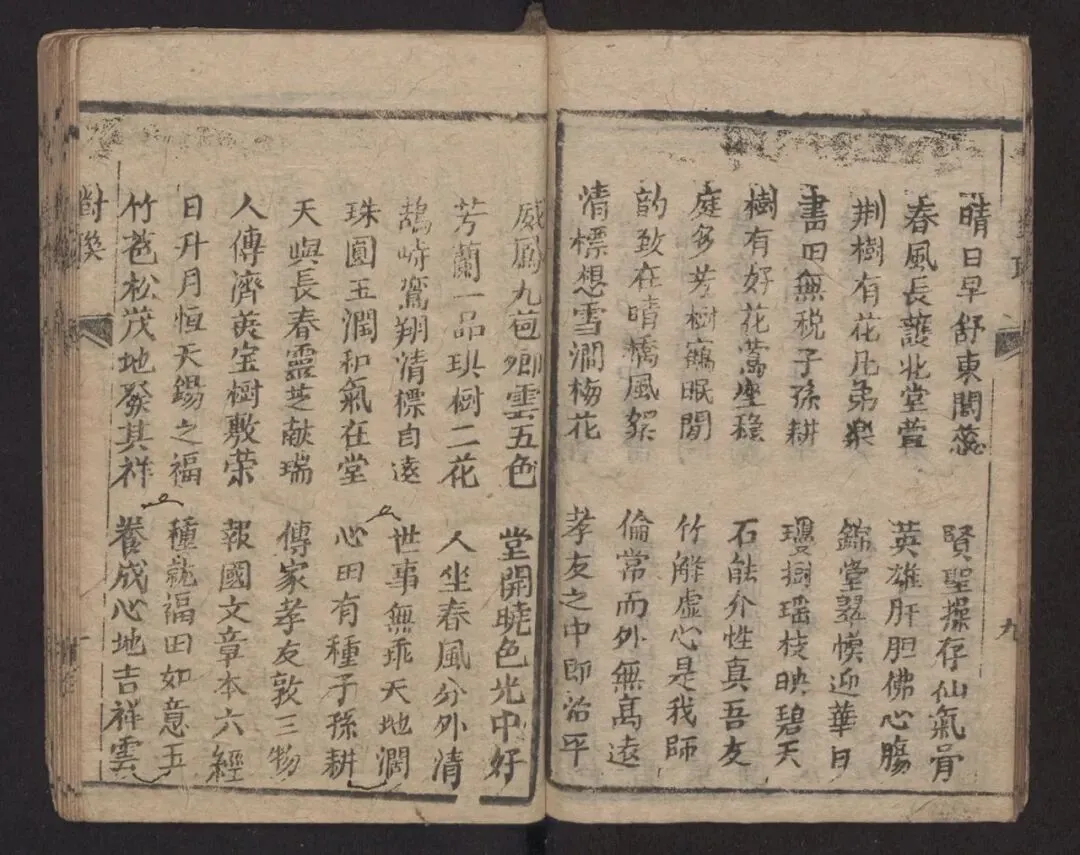 晴日早舒東閣蕊
賢聖操存仙氣骨
春風長護北堂萱
英雄肝胆佛心腸
荆樹有花凡弟樂
錦堂翠幙迎華日
書田無税子孫耕
瓊樹瑶枝映碧天
樹有好花座穏
石能介性真吾友
庭多芳樹鶴眠閒
竹解虚心是我師
韵致在晴橋風絮
倫常而外無高逺
清標想雪澗梅花
孝友之中即治平
九
威鳳九苞卿雲五色
堂開曉色光中好
芳蘭一品琪樹二花
人坐春風分外清
鵠峙鸞翔清標自逺
世事無乖天地濶
珠圓玉潤和氣在堂
心田有種子孫耕
天與長春靈芝献瑞
傳家孝友敦三物
人傳濟美宝樹敷荣
報國文章本六經
日升月恒天錫之福
種就福田如意玉
竹苞松茂地發其祥
養成心地吉祥雲
對聯